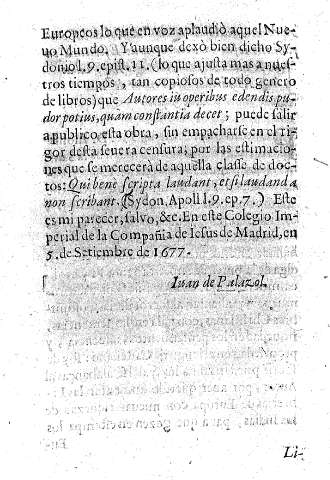 Europeos lo que en voz aplaudiò aquel Nue-
vo Mundo. Y aunque dexò bien dicho Sy-
donio l. 9. epist. 11. (lo que ajusta mas a nues-
tros tiempos, tan copiosos de todo genero
de libros) que Autores in operibus edendis pu-
dor potius, quam constantia decet; puede salir
a publico esta obra, sin empacharse en el ri-
gor desta severa censura; por las estimacio-
nes que se merecerà de aquella classe de doc-
tos: Qui bene scripta laudant, et si laudanda
non scribant. (Sydon. Apoll l. 9. ep. 7.) Este
es mi parecer, salvo, &c. En este Colegio Im-
perial de la Compañia de Iesus de Madrid, en
5. de Setiembre de 1677.
Iuan de Palazol.
Li-